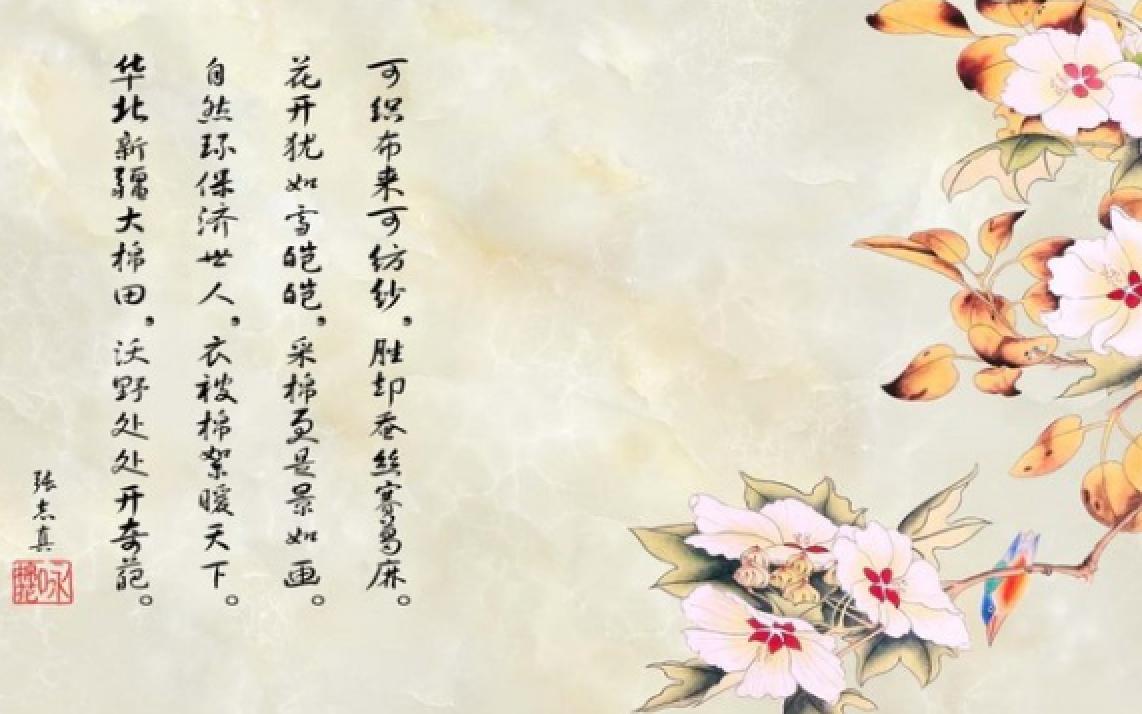 可织布来可纺纱，胜却蚕丝赛葛麻。
花开犹如雪皑皑，采棉更是景如画。
自然环保济世人，衣被棉絮暖天下。
华北新疆大棉田，沃野处处开奇葩。
张志真